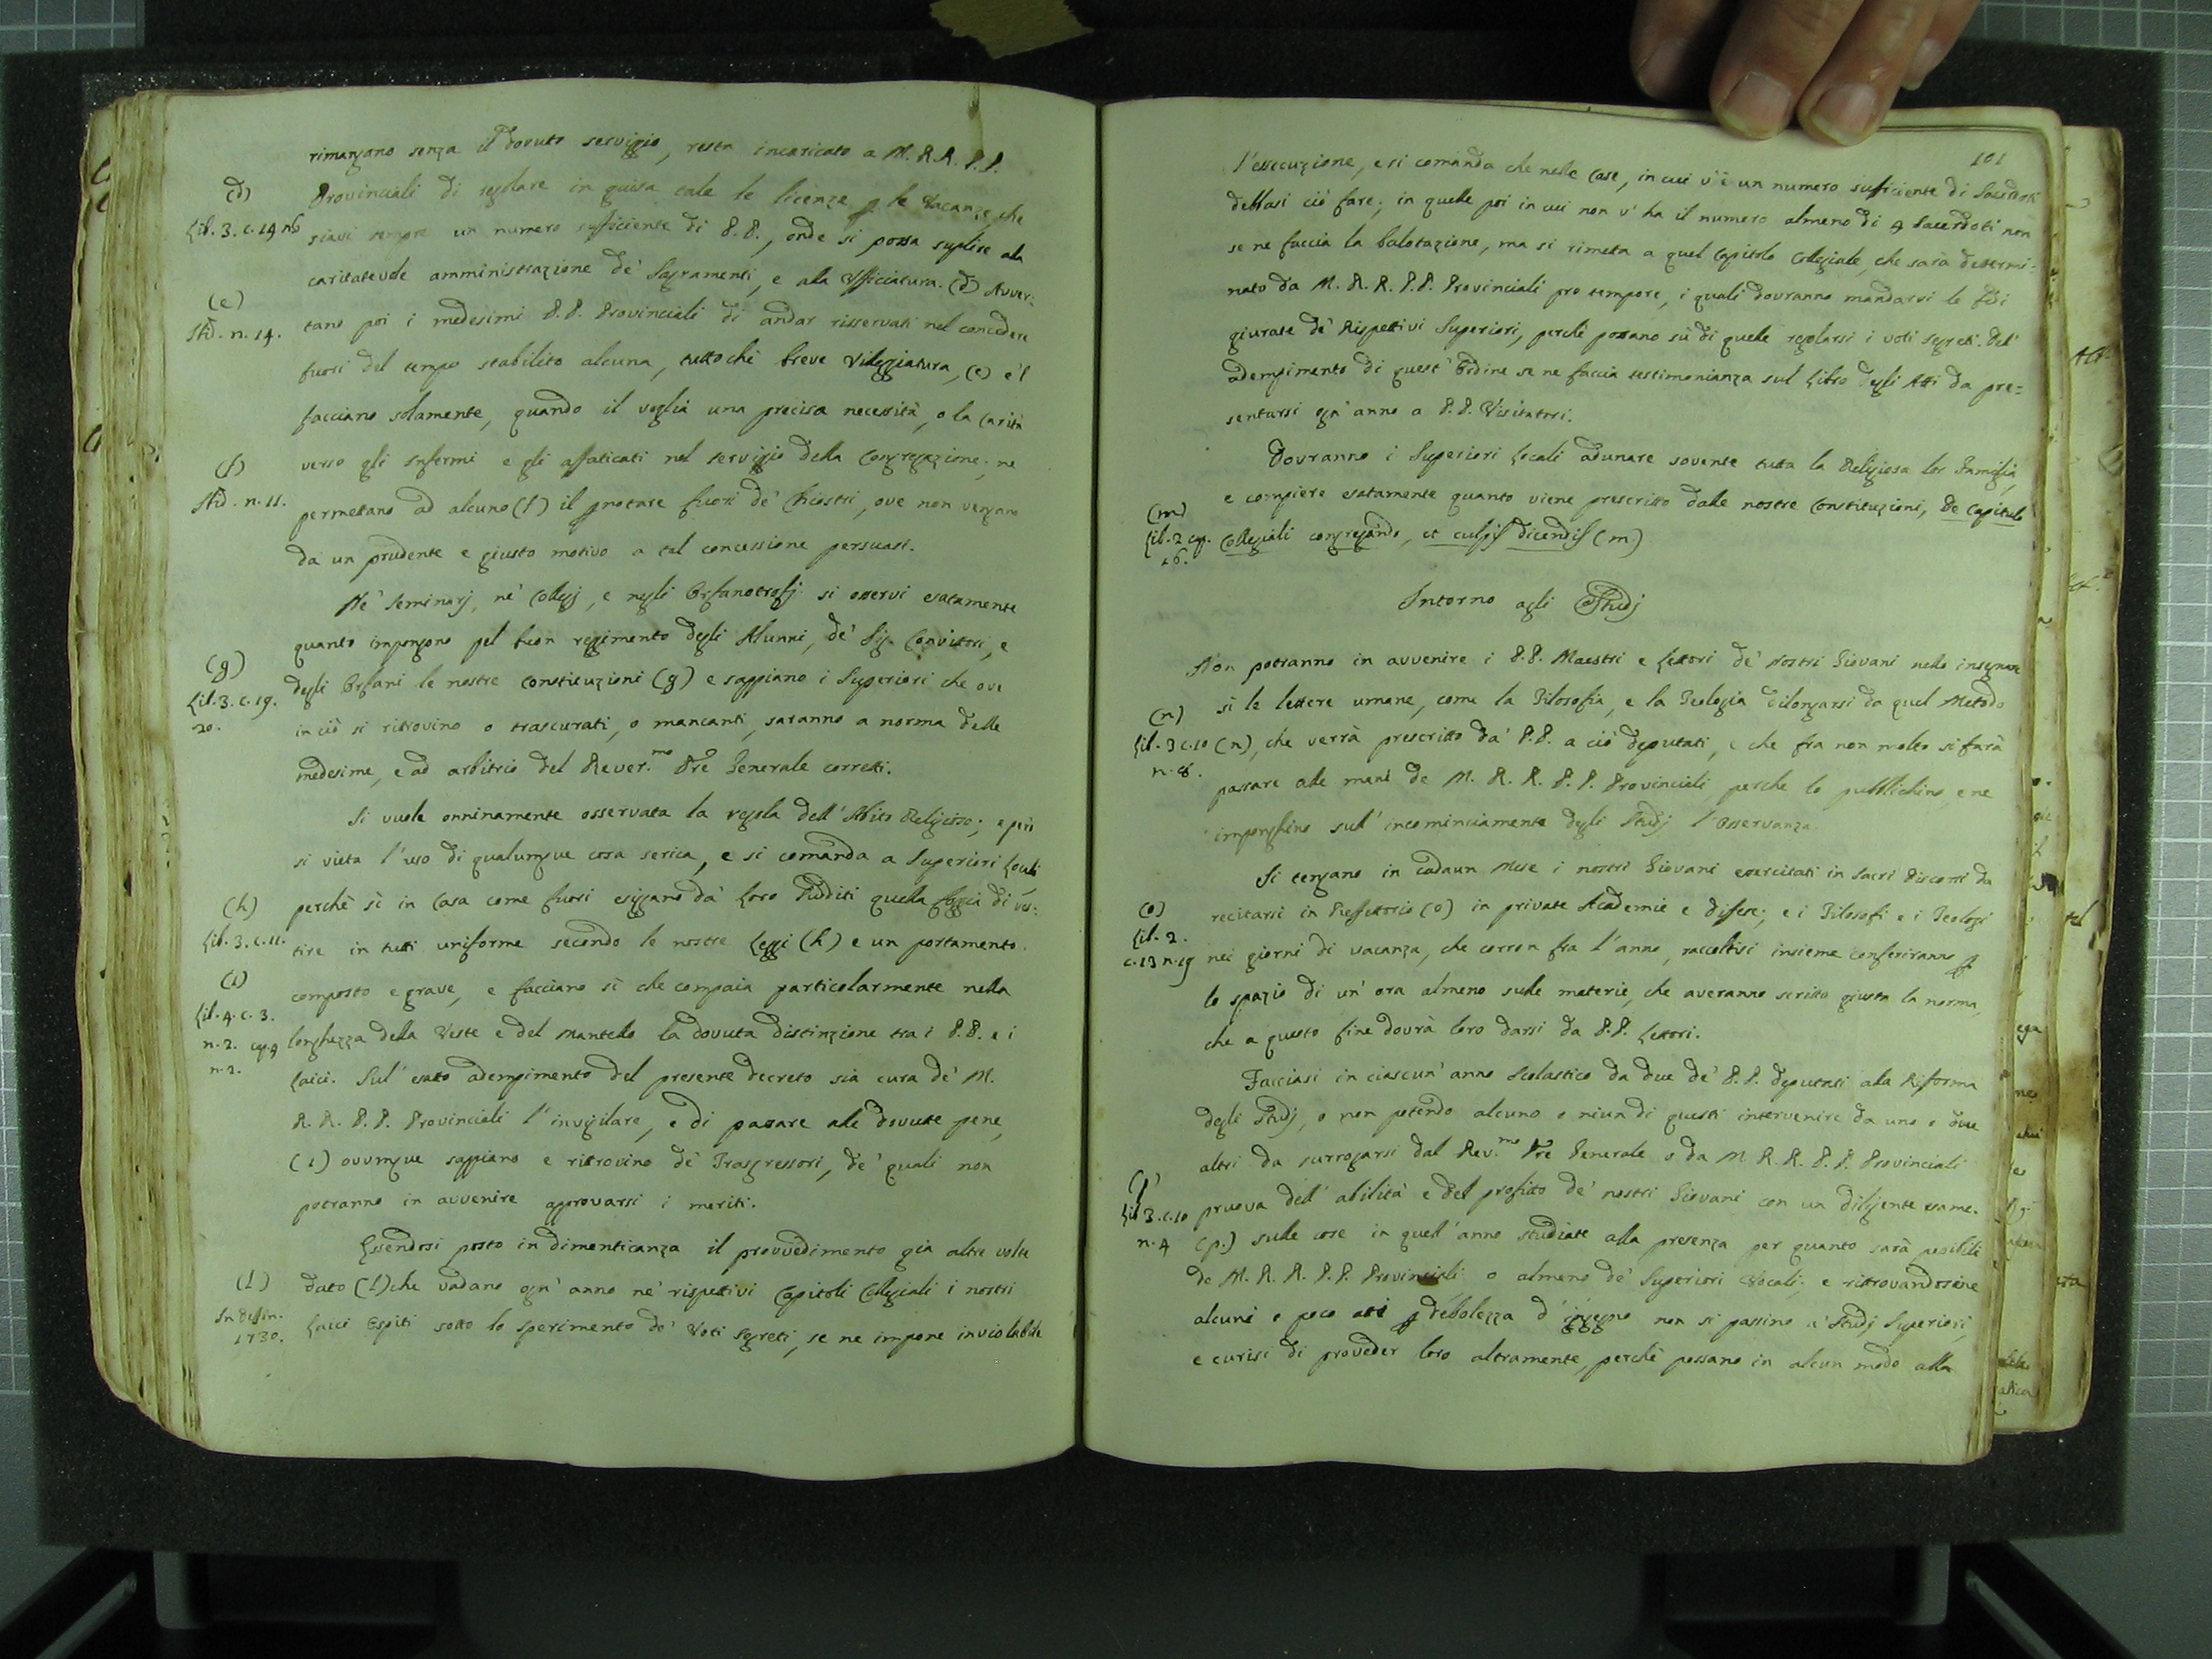 rimangano senza il dovuto servigio, resta incaricato a M. R.R. P.P.
(d)
Provinciali di regolare in guisa tale le licenze p le Vacanze, che
Lib. 3. c. 19 n6
siavi sempre un numero sufficiente di P.P., onde si possa suplire ala
caritatevole amministrazione de' Sagramenti, e ala Ufficiatura. (d) Avver=
(e)
Ibid. n. 14.
tano poi i medesimi P.P. Provinciali di andar risservati nel concedere
fuori del tempo stabilito alcuna, tutto chè breve Vileggiatura, (e) e 'l
facciano solamente, quando il voglia una precisa necessità, o la carità
(f)
verso gli infermi e gli affaticati nel servigio della Congregazione; ne
Ibid. n. 11.
permetano ad alcuno (f) il pnotare fuori de' Chiostri, ove non vengano
da un prudente e giusto motivo a tal concessione persuasi.
Ne' Seminarj, ne' Collegj, e negli Orfanotrofj si osservi esatamente
quanto impongono pel buon reggimento degli Alunni, de' Sig. Convittori, e
(g)
Lib. 3. c. 19.
20.
degli Orfani le nostre Constituzioni (g) e sappiano i Superiori che ove
in ciò si ritrovino o trascurati, o mancanti, saranno a norma delle
medesime, e ad arbitrio del Rever.mo Pre Generale corretti.
Si vuole onninamente osservata la regola dell' Abito Religioso; e però
si vieta l'uso di qualunque cosa serica, e si comanda a Superiori Locali
(h)
perchè sì in Casa come fuori esiggano da' Loro Sudditi quella foggia di ves=
Lib. 3. c. 11.
tire in tutti uniforme secondo le nostre Leggi (h) e un portamento
(i)
composto e grave, e facciano sì che compaia particolarmente nella
Lib. 4. c. 3.
n. 2. cap. 9
n. 2.
longhezza della Veste e del Mantello la dovuta distinzione tra i P.P. e i
Laici. Sul' esato adempimento del presente decreto sia cura de' M.
R. R. P. P. Provinciali l'invigilare, e di passare ale dovute pene,
(i) ovunque sappiano e ritrovino de' Trasgressori, de' quali non
potranno in avvenire approvarsi i meriti.
Essendosi posto in dimenticanza il provvedimento già altre volte
(l)
dato (l) che vadano ogn' anno ne' rispettivi Capitoli Collegiali i nostri
In Defin.
1730.
Laici Ospiti sotto lo sperimento de' Voti segreti, se ne impone inviolabile
101
l'essecuzione, e si comanda che nelle Case, in cui v'è un numero sufficiente di Sacerdoti
debbasi ciò fare; in quelle poi in cui non v' ha il numero almeno di 4 Sacerdoti non
se ne faccia la balotazione, ma si rimetta a quel Capitolo Collegiale, che sarà determi=
nato da M. R. R. P.P. Provinciali pro tempore, i quali dovranno mandarvi le fedi
giurate de' Rispettivi Superiori, perchè possano sù di quelle regolarsi i voti segreti. Del'
adempimento di quest' Ordine se ne faccia testimonianza sul Libro degli Atti da pre=
sentarsi ogn' anno a P.P. Visitatori.
Dovranno i Superiori Locali adunare sovente tutta la Religiosa lor Famiglia,
e compiere esatamente quanto viene prescritto dalle nostre Constituzioni, De Capitulo
(m)
Lib. 2 cap.
16.
Collegiali congregando, et culpis dicendis (m)
Intorno agli Studj
Non potranno in avvenire i P.P. Maestri e Lettori de' Nostri Giovani nello insegnare
sì le lettere umane, come la Filosofia, e la Teologia dilongarsi da quel Metodo
(n)
Lib. 3 c. 10
n. 8.
(n), che verrà prescritto da' P.P. a ciò deputati, e che fra non molto si farà
passare alle mani de M. R. R. P. P. Provinciali, perchè lo pubblichino, e ne
imponghino sul' incominciamento degli Studj l'Osservanza.
Si tengano in cadaun Mese i nostri Giovani esercitati in Sacri Discorsi da
(o)
recitarsi in Reffettorio (o) in private Academie e difese; e i Filosofi e i Teologi
Lib. 2.
c. 13 n. 19
nei giorni di vacanza, che corron fra l'anno, raccoltisi insieme conferiranno p
lo spazio di un' ora almeno sulle materie, che averanno scritto giusta la norma,
che a questo fine dovrà loro darsi da P.P. Lettori.
Facciasi in ciascun' anno Scolastico da due de' P.P. deputati ala Riforma
degli Studj, o non potendo alcuno o niun di questi intervenire da uno o due
altri da surrogarsi dal Rev.mo Pre Generale o da M. R. R. P. P. Provinciali
(p)
Lib 3. c. 10
n. 4
pruova dell' abilità e del profitto de' nostri Giovani con un diligente esame
(p.) sulle cose in quell' anno studiate alla presenza per quanto sarà possibile
de M. R. R. P.P. Provinciali o almeno de' Superiori Vocali; e ritrovandosene
alcuni o poco atti p debolezza d' ingegno non si passino a' Studj Superiori,
e curisi di proveder loro altramente, perchè possano in alcun modo alla